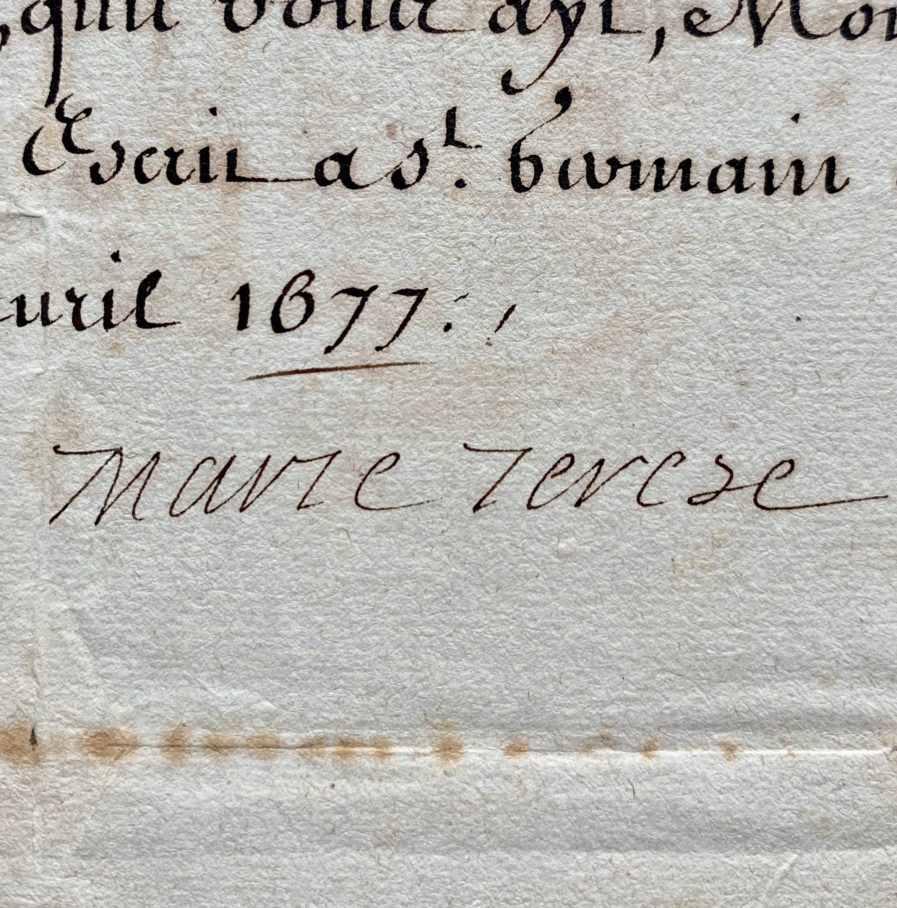 ,qu'il vous ayt, Mon
Escrit a St. Germain
auril 1677.
Marie Terese